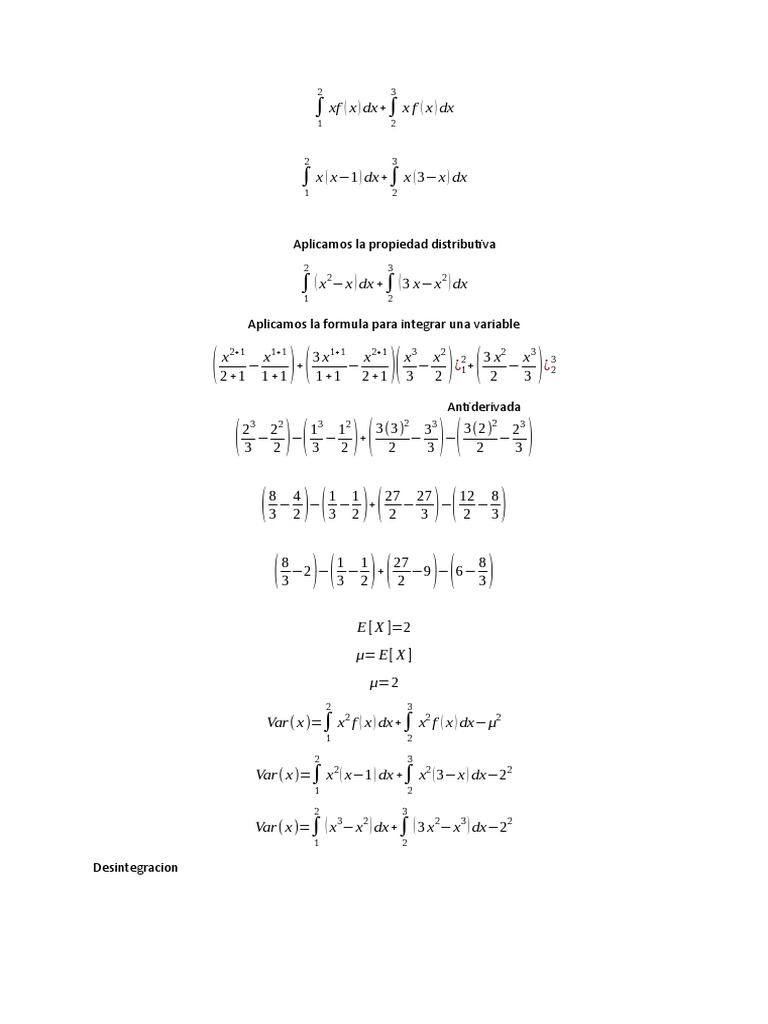 ∫₁² xf(x)dx+∫₂³ x f(x)dx
∫₁² x(x−1)dx+∫₂³ x(3−x)dx
Aplicamos la propiedad distributiva
∫₁² (x²−x)dx+∫₂³ (3x−x²)dx
Aplicamos la formula para integrar una variable
(x²⁺¹/2+1 − x¹⁺¹/1+1)+(3x¹⁺¹/1+1 − x²⁺¹/2+1)(x³/3 − x²/2)¿₁²+(3x²/2 − x³/3)¿₂³
Antiderivada
(2³/3 − 2²/2)−(1³/3 − 1²/2)+(3(3)²/2 − 3³/3)−(3(2)²/2 − 2³/3)
(8/3 − 4/2)−(1/3 − 1/2)+(27/2 − 27/3)−(12/2 − 8/3)
(8/3 −2)−(1/3 − 1/2)+(27/2 −9)−(6− 8/3)
E[X]=2
μ=E[X]
μ=2
Var(x)=∫₁² x²f(x)dx+∫₂³ x²f(x)dx−μ²
Var(x)=∫₁² x²(x−1)dx+∫₂³ x²(3−x)dx−2²
Var(x)=∫₁² (x³−x²)dx+∫₂³ (3x²−x³)dx−2²
Desintegracion